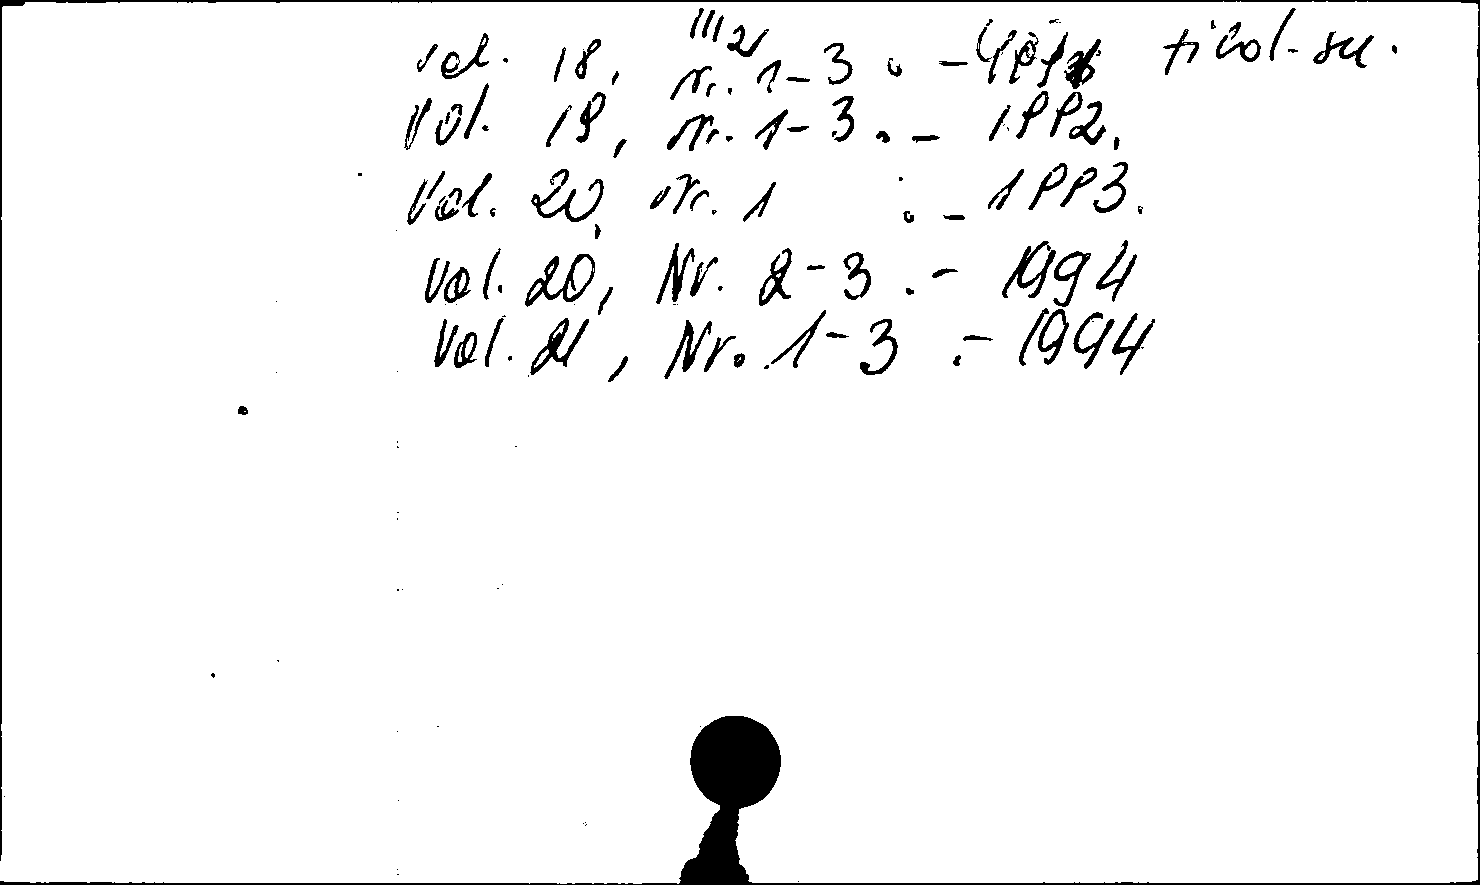 Vol. 18, Nr. 1-3 . -
Vol. 19, Nr. 1-3 . - 1992.
Vol. 20, Nr. 1 . - 1993.
Vol. 20, Nr. 2-3 . - 1994
Vol. 21, Nr. 1-3 . - 1994